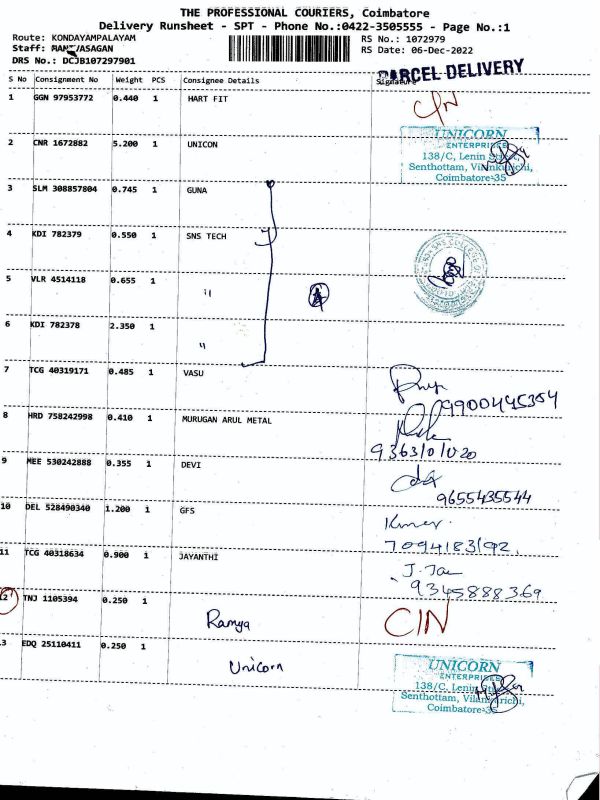 THE PROFESSIONAL COURIERS, Coimbatore
Delivery Runsheet - SPT - Phone No.:0422-3505555 - Page No.:1
Route: KONDAYAMPALAYAM
RS No.: 1072979
Staff: MANIVASAGAN
RS Date: 06-Dec-2022
DRS No.: DCJB107297901
PARCEL DELIVERY
S No Consignment No Weight PCS Consignee Details Signature
1 GGN 97953772 0.440 1 HART FIT
2 CNR 1672882 5.200 1 UNICON
UNICORN
ENTERPRISES
138/C, Lenin
Senthottam, Vilankurichi,
Coimbatore-35
3 SLM 308857804 0.745 1 GUNA
4 KDI 782379 0.550 1 SNS TECH
5 VLR 4514118 0.655 1 "
6 KDI 782378 2.350 1 "
7 TCG 40319171 0.485 1 VASU
9900445354
8 HRD 758242998 0.410 1 MURUGAN ARUL METAL
9 MEE 530242888 0.355 1 DEVI
9655435544
10 DEL 528490340 1.200 1 GFS
Kumar.
7094183192.
11 TCG 40318634 0.900 1 JAYANTHI
9345888369
12 TNJ 1105394 0.250 1 Ramya C/N
3 EDQ 25110411 0.250 1 Unicorn
UNICORN
ENTERPRISES
138/C, Lenin
Senthottam, Vilankurichi,
Coimbatore-35